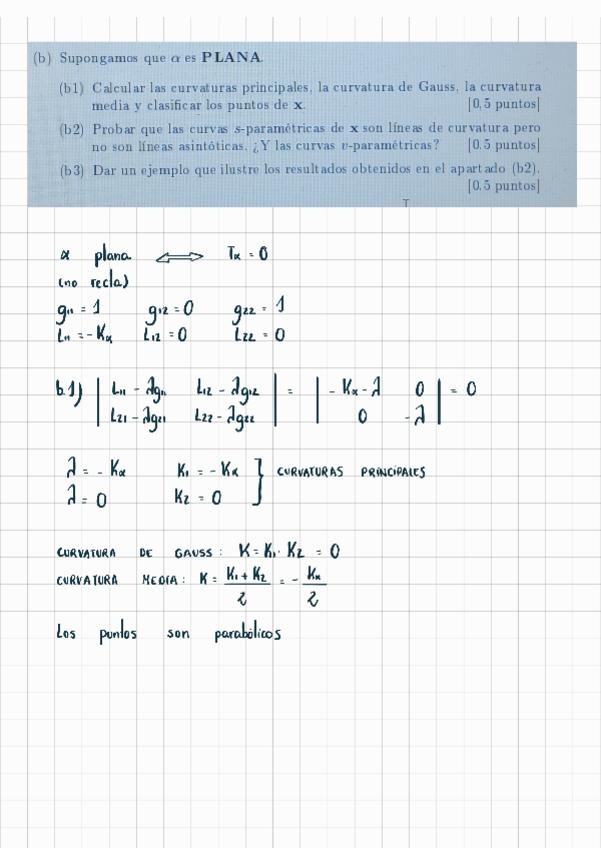 (b) Supongamos que α es PLANA.
(b1) Calcular las curvaturas principales, la curvatura de Gauss, la curvatura
media y clasificar los puntos de x. [0,5 puntos]
(b2) Probar que las curvas s-paramétricas de x son líneas de curvatura pero
no son líneas asintóticas. ¿Y las curvas v-paramétricas? [0.5 puntos]
(b3) Dar un ejemplo que ilustre los resultados obtenidos en el apartado (b2).
[0.5 puntos]
α plana ⟺ Tα = 0
(no recta)
g11 = 1 g12 = 0 g22 = 1
L11 = -Kα L12 = 0 L22 = 0
b.1) | L11 - λg11 L12 - λg12 | = | -Kα - λ 0 | = 0
| L21 - λg21 L22 - λg22 | | 0 -λ |
λ = -Kα K1 = -Kα } CURVATURAS PRINCIPALES
λ = 0 K2 = 0
CURVATURA DE GAUSS: K = K1 · K2 = 0
CURVATURA MEDIA: K = (K1 + K2)/2 = - Kα/2
Los puntos son parabólicos